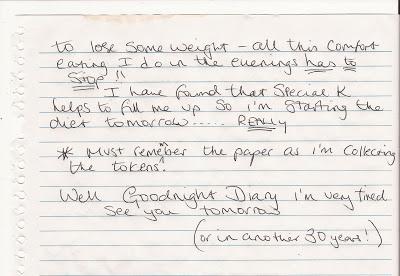 to lose some weight - all this comfort
eating I do in the evenings has to
stop!!
I have found that Special K
helps to fill me up so i'm starting the
diet tomorrow..... REALLY
* Must remember the paper as i'm collecting
the tokens!
Well Goodnight Diary i'm very tired
see you tomorrow
(or in another 30 years!)